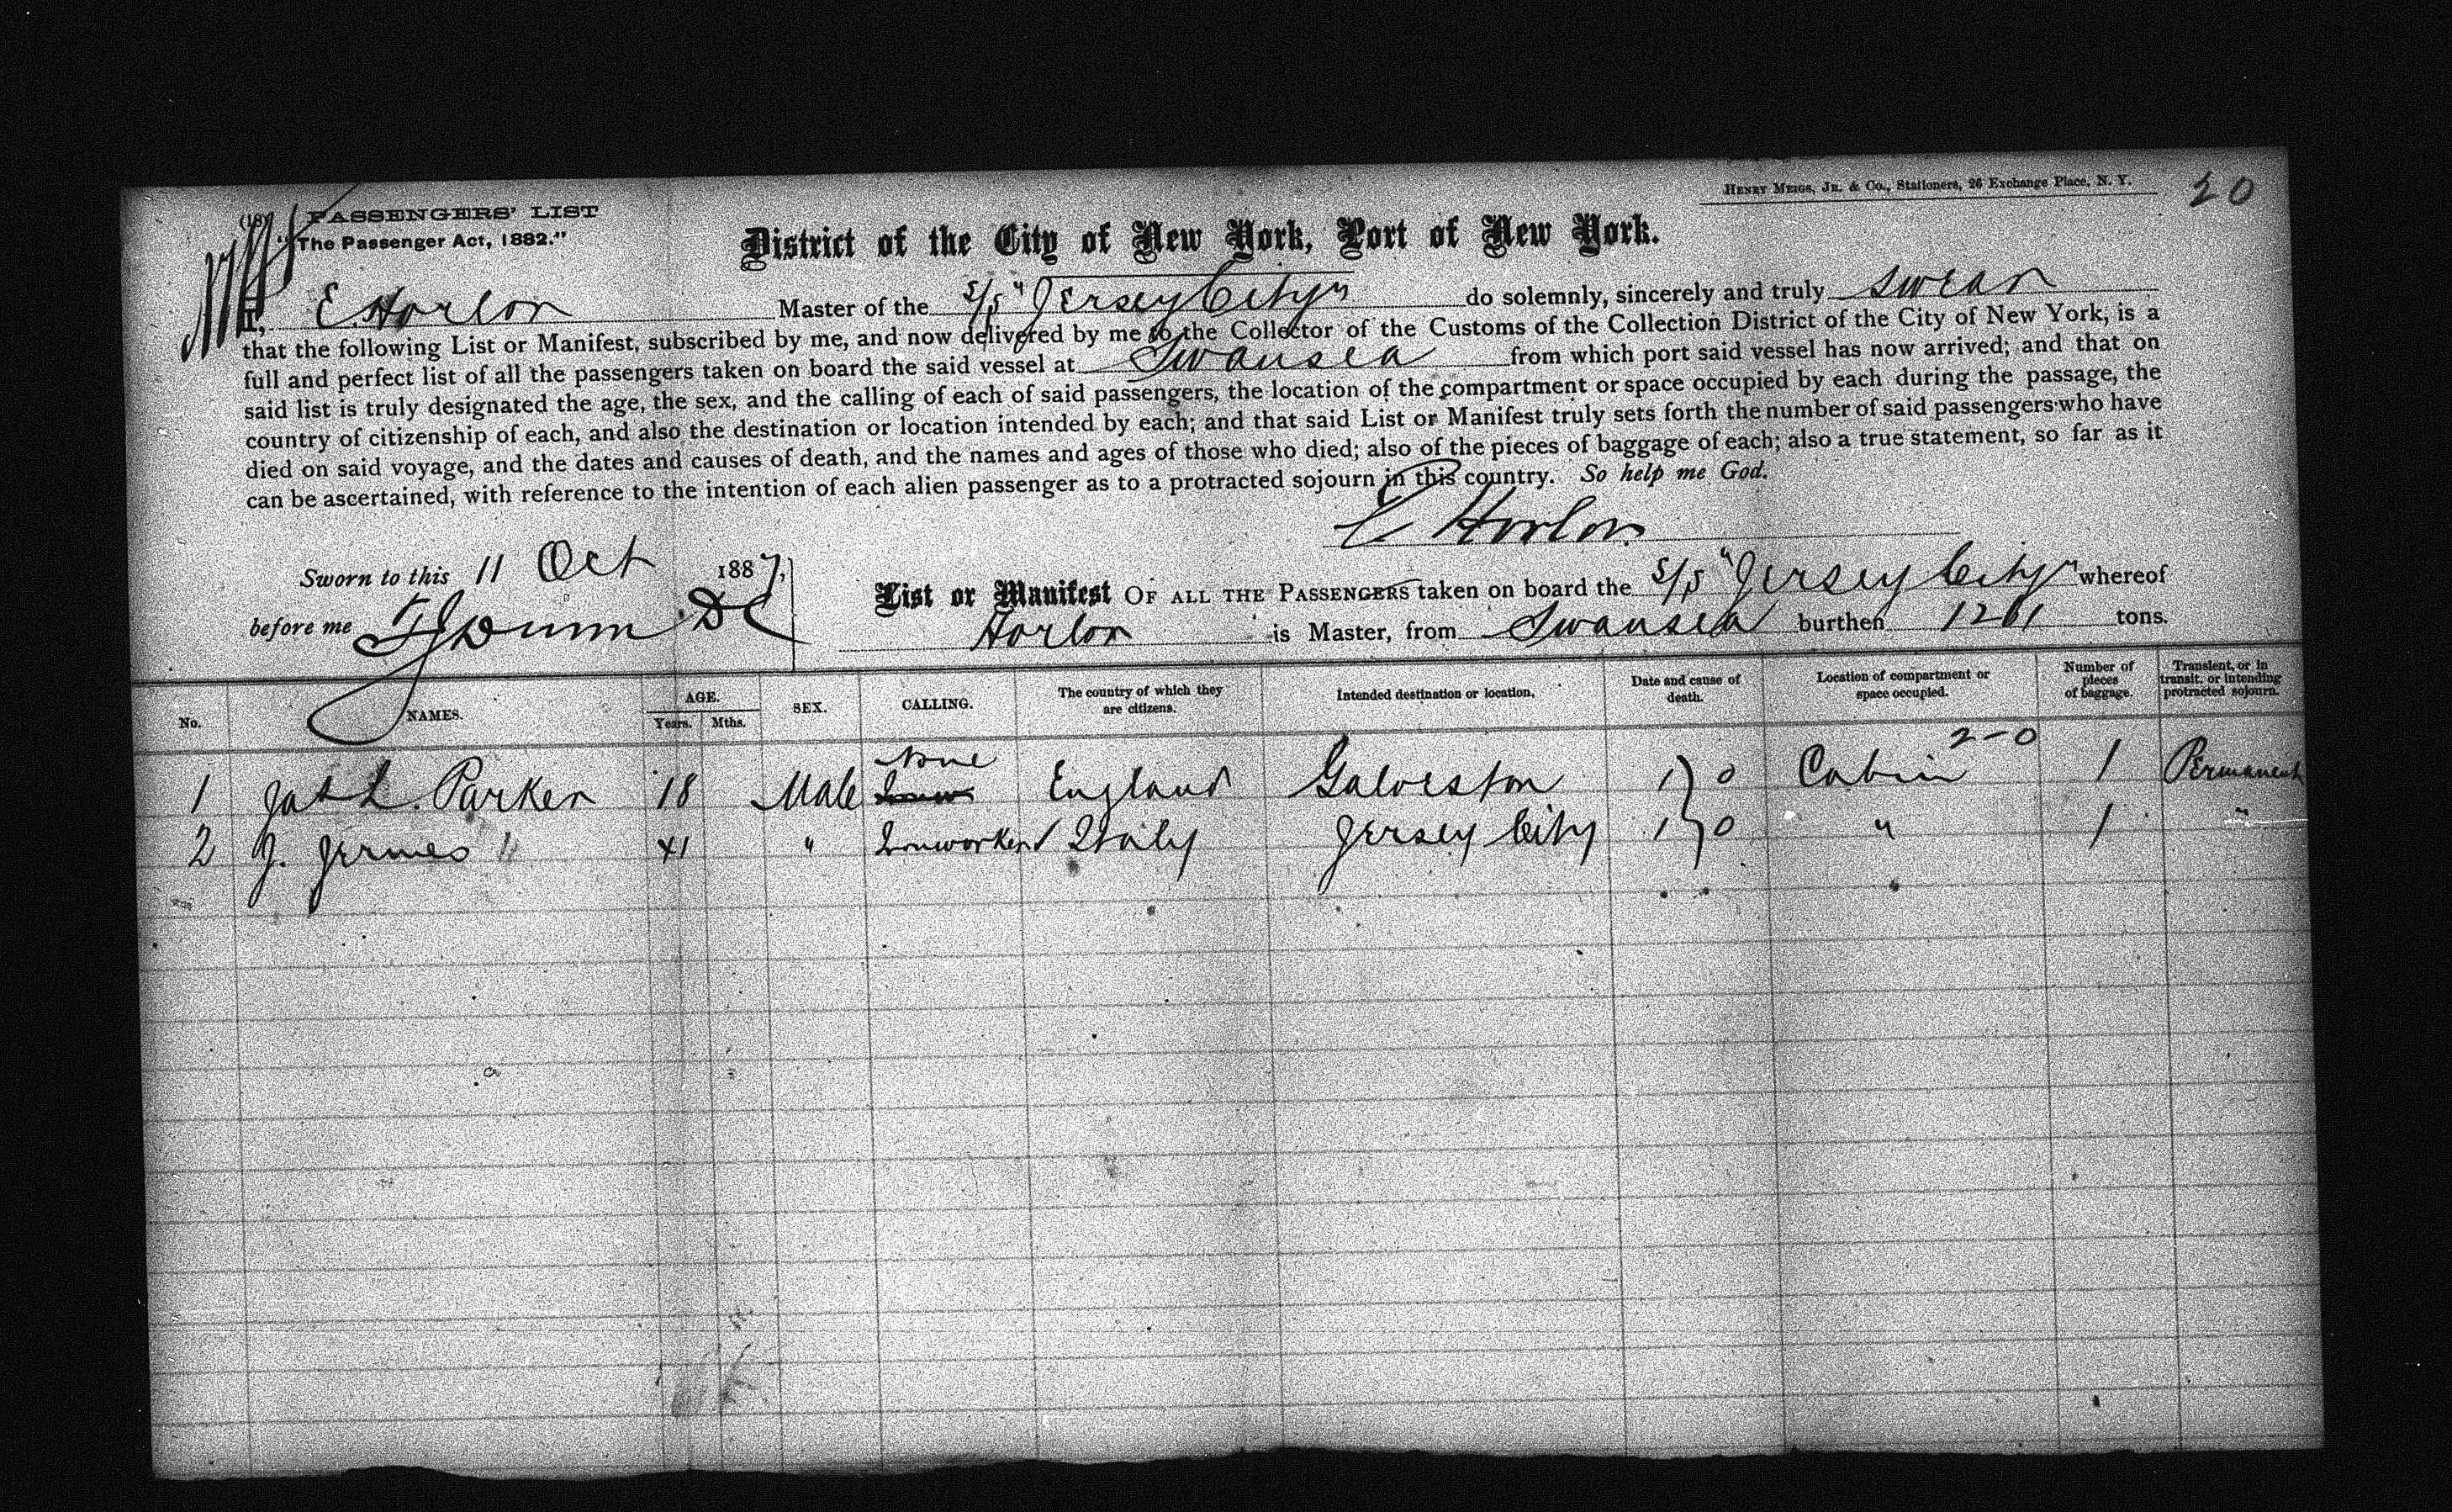 HENRY MEIGS, JR. & CO., Stationers, 26 Exchange Place, N. Y.
20
(18) PASSENGERS' LIST
"The Passenger Act, 1882."
District of the City of New York, Port of New York.
I, E. Horlor Master of the S/S "Jersey City" do solemnly, sincerely and truly swear
that the following List or Manifest, subscribed by me, and now delivered by me to the Collector of the Customs of the Collection District of the City of New York, is a
full and perfect list of all the passengers taken on board the said vessel at Swansea from which port said vessel has now arrived; and that on
said list is truly designated the age, the sex, and the calling of each of said passengers, the location of the compartment or space occupied by each during the passage, the
country of citizenship of each, and also the destination or location intended by each; and that said List or Manifest truly sets forth the number of said passengers who have
died on said voyage, and the dates and causes of death, and the names and ages of those who died; also of the pieces of baggage of each; also a true statement, so far as it
can be ascertained, with reference to the intention of each alien passenger as to a protracted sojourn in this country. So help me God.
E Horlor
Sworn to this 11 Oct 1887,
before me
List or Manifest OF ALL THE PASSENGERS taken on board the S/S "Jersey City" whereof
Horlor is Master, from Swansea burthen 1261 tons.
No. NAMES. AGE. Years. Mths. SEX. CALLING. The country of which they are citizens. Intended destination or location. Date and cause of death. Location of compartment or space occupied. Number of pieces of baggage. Transient, or in transit, or intending protracted sojourn.
1 Jas L. Parker 18 Male None England Galveston 1) 0 Cabin 2-0 1 Permanent
2 J. 41 " Ironworker / Italy Jersey City 1) 0 " 1 "